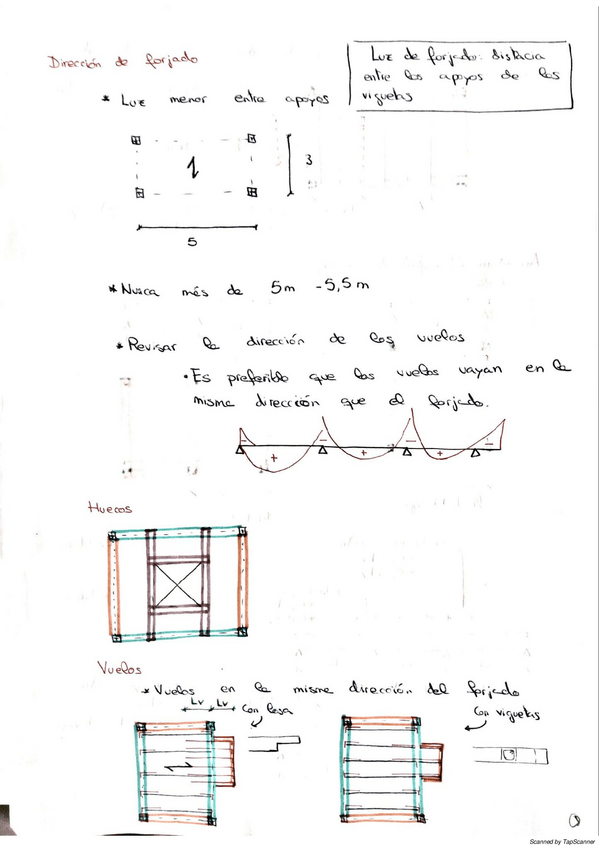 Dirección de forjado
Luz de forjado: distacia
entre los apoyos de las
viguetas
* Luz menor entre apoyos
3
5
* Nunca més de 5m - 5,5m
* Revisar la dirección de los vuelos
· Es preferible que los vuelos vayan en la
misma dirección que el forjado.
- - - -
+ + +
Huecos
Vuelos
* Vuelos en la misma dirección del forjado
Lv Lv
con losa
con viguetas
Scanned by TapScanner